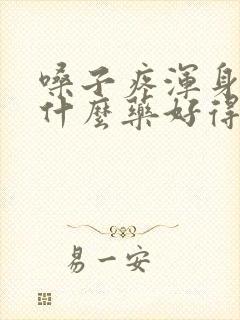 嗓子疼渾身
什麼藥好得
易一安